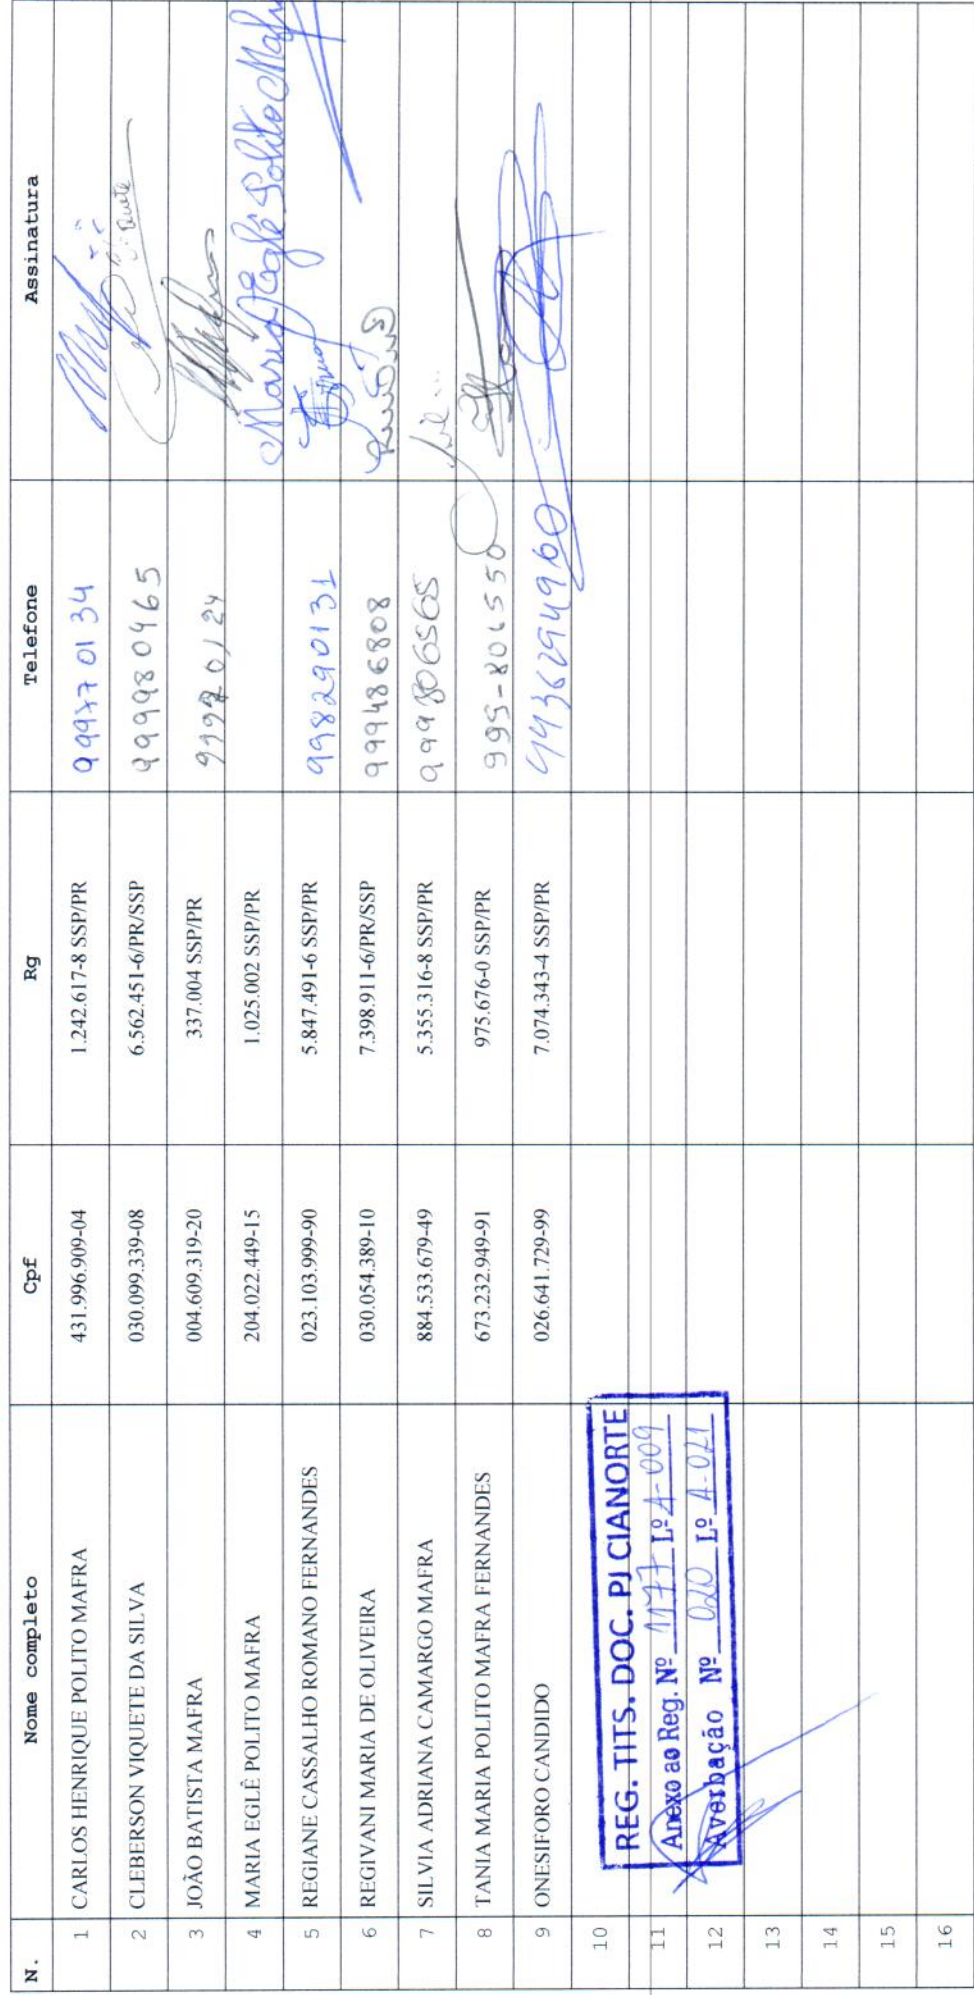 N. Nome completo Cpf Rg Telefone Assinatura
1 CARLOS HENRIQUE POLITO MAFRA 431.996.909-04 1.242.617-8 SSP/PR 99977 01 34
2 CLEBERSON VIQUETE DA SILVA 030.099.339-08 6.562.451-6/PR/SSP 999980465
3 JOÃO BATISTA MAFRA 004.609.319-20 337.004 SSP/PR
4 MARIA EGLÊ POLITO MAFRA 204.022.449-15 1.025.002 SSP/PR Maria Eglê Polito Mafra
5 REGIANE CASSALHO ROMANO FERNANDES 023.103.999-90 5.847.491-6 SSP/PR 998290131
6 REGIVANI MARIA DE OLIVEIRA 030.054.389-10 7.398.911-6/PR/SSP 999486808
7 SILVIA ADRIANA CAMARGO MAFRA 884.533.679-49 5.355.316-8 SSP/PR 999806565
8 TANIA MARIA POLITO MAFRA FERNANDES 673.232.949-91 975.676-0 SSP/PR
9 ONESIFORO CANDIDO 026.641.729-99 7.074.343-4 SSP/PR
10
REG. TITS. DOC. PJ CIANORTE
11
Anexo ao Reg. Nº 1177 Lº A-009
12
Averbação Nº 020 Lº A-021
13
14
15
16